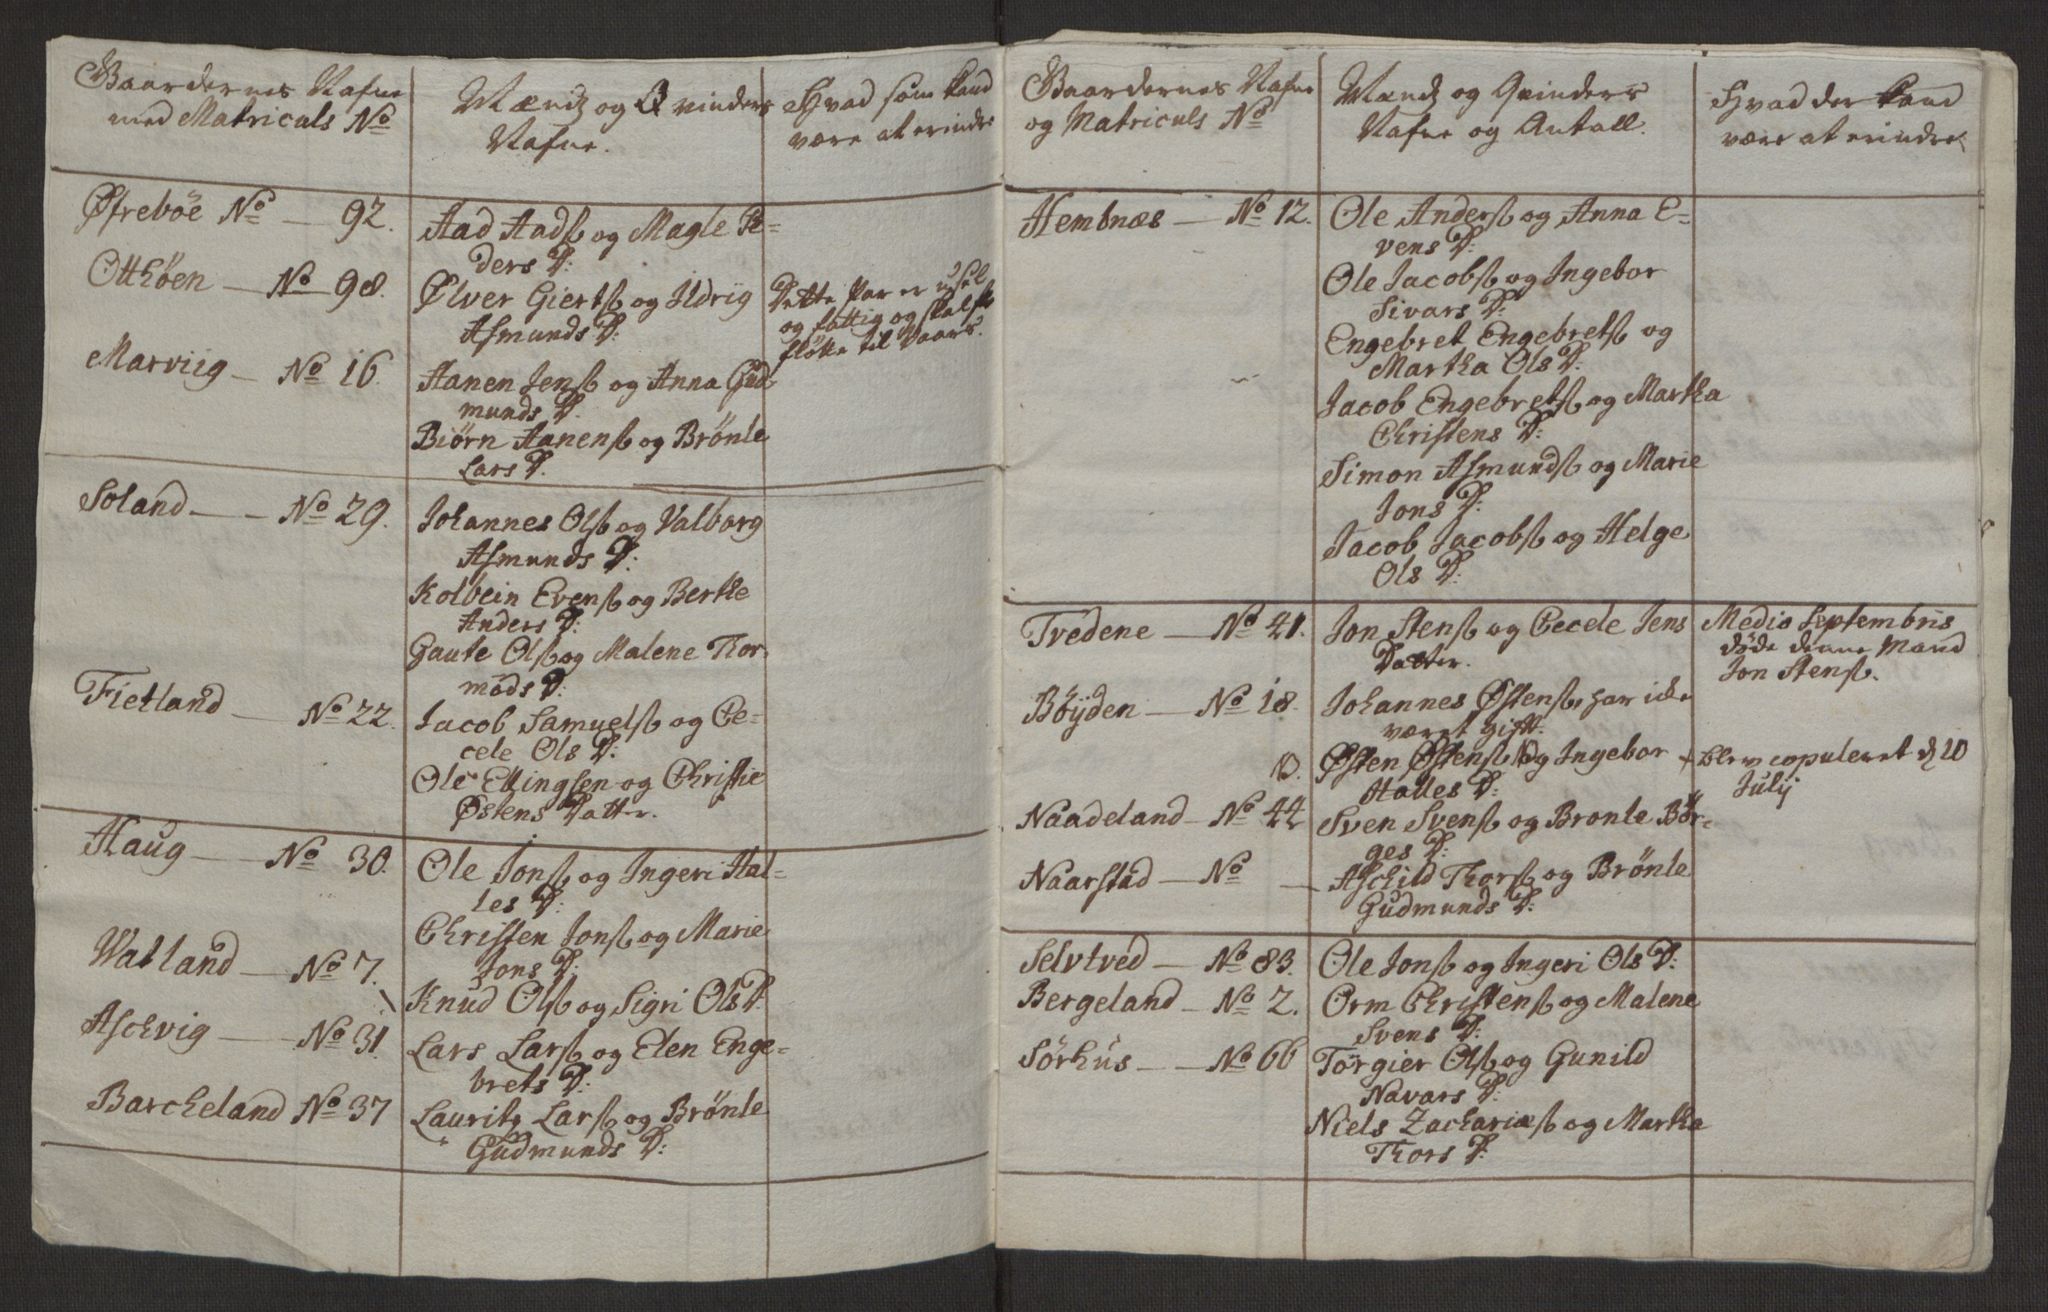 Gaardernes Nafne
med Matriculs No
Mænds og Qvinders
Nafne.
Hvad som kand
være at erindre
Øfreböe No — 92.
Aad Aadsß og Magle Pe-
ders D:
Otthöen — No 98.
Ølver Giertsß og Ildrig
Asmunds D:
Dette Par er usel
og fattig og skal
flötte til Vaars.
Marviig — No 16
Aanen Jensß og Anna Gud-
munds D.
Biörn Aanensß og Brönle
Lars D.
Soland — No 29.
Johannes Olsß og Valborg
Asmunds D:
Kolbein Evensß og Berthe
Anders D:
Gaute Olsß og Malene Thor-
möds D:
Fietland — No 22.
Jacob Samuelsß og Ce-
cele Ols D:
Ole Ellingsen og Christie
Østens Datter.
Haug — No 30.
Ole Jonsß og Ingeri Hal-
les D:
Christen Jonsß og Marie
Jons D:
Watland — No 7.
Knud Olsß og Sigri Ols D:
Aschvig — No 31
Lars Larsß og Elen Enge-
brets D:
Barcheland No 37
Lauritz Larsß og Brönle
Gudmunds D:
Gaardernes Nafne
og Matriculs No
Mænds og Qvinders
Nafne og Antall.
Hvad der kand
være at erindre
Hembnæs — No 12.
Ole Andersß og Anna E-
vens D:
Ole Jacobsß og Ingebor
Sivars D:
Engebret Engebretsß og
Martha Ols D:
Jacob Engebretsß og Martha
Christens D:
Simon Asmundsß og Marie
Jons D:
Jacob Jacobsß og Helge
Ols D:
Tvedene — No 41.
Jon Stensß og Cecele Jens
Datter.
Medio Septembris
döde denne Mand
Jon Stensß.
Böyden — No 18.
Johannes Østensß, har icke
været gift.
Østen Østensß og Ingebor
Halles D:
+ blev copuleret d 10
July
Naadeland — No 44
Sven Svensß og Bronle Bör-
ges D:
Naarstad — No —
Aschild Thorsß og Brönle
Gudmunds D:
Selvtved — No 83.
Ole Jonsß og Ingeri Ols D:
Bergeland — No 2.
Orm Christensß og Malene
Svens D:
Sörhus — No 66
Torgier Olsß og Gunild
Navars D:
Niels Zachariæsß og Martha
Thors D: